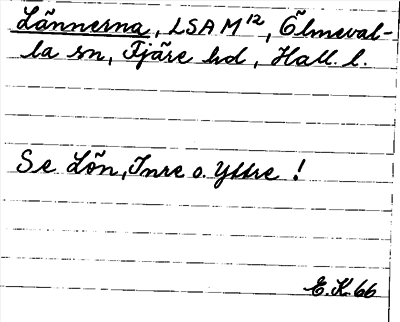 Lännerna, LSA M¹², Ölmeval-
la sn, Fjäre hd, Hall. l.
Se Lön, Inre o. Yttre !
E.K. 66